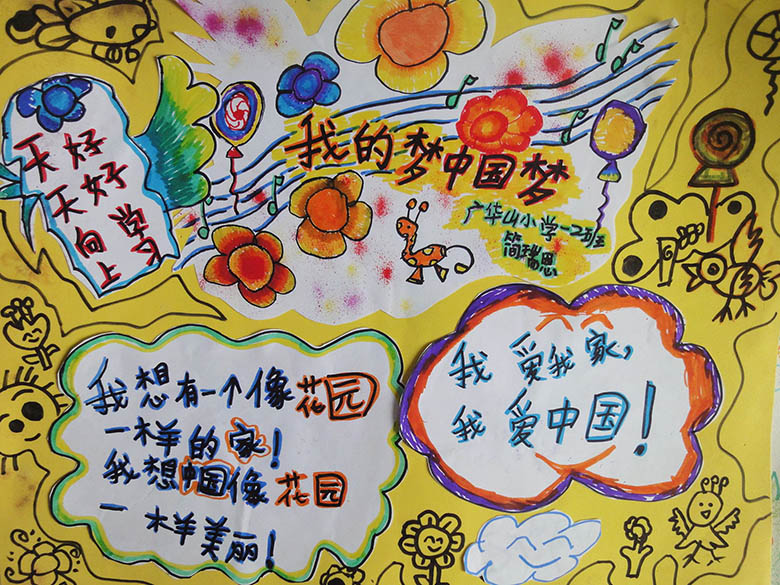 好好学习
天天向上
我的梦中国梦
广华山小学一2班
简瑞恩
我想有一个像花园
一样的家！
我想中国像花园
一样美丽！
我爱我家，
我爱中国！